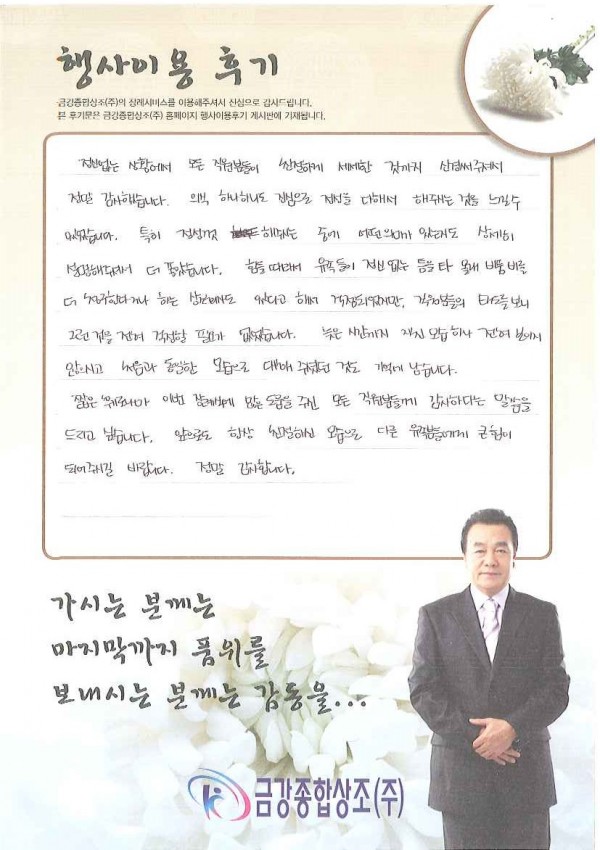 행사이용 후기
금강종합상조(주)의 장례서비스를 이용해주셔서 진심으로 감사드립니다.
본 후기문은 금강종합상조(주) 홈페이지 행사이용후기 게시판에 기재됩니다.
정신없는 상황에서 모든 직원분들이 친절하게 세세한 것까지 신경써주셔서
정말 감사했습니다. 의식 하나하나도 진심으로 정성을 다해서 해주는 것을 느낄수
있었습니다. 특히 정성껏 해주시는 동기 어떤 의미가 있는지도 상세히
설명해주셔서 더 좋았습니다. 힘들 때라서 유족들이 정신 없는 틈을 타 몰래 비품비를
더 하는 상조회사도 있다고 해서 걱정되었지만, 직원분들의 태도를 보니
그런 것을 전혀 걱정할 필요가 없었습니다. 늦은 시간까지 지친 모습 하나 전혀 보이지
않으시고 처음과 동일한 모습으로 대해 주셨던 것도 기억에 남습니다.
짧은 후기로나마 이번 장례식에 많은 도움을 주신 모든 직원분들께 감사하다는 말씀을
드리고 싶습니다. 앞으로도 항상 친절하신 모습으로 다른 유족분들에게 큰 힘이
되어주시길 바랍니다. 정말 감사합니다.
가시는 분께는
마지막까지 품위를
보내시는 분께는 감동을...
금강종합상조(주)